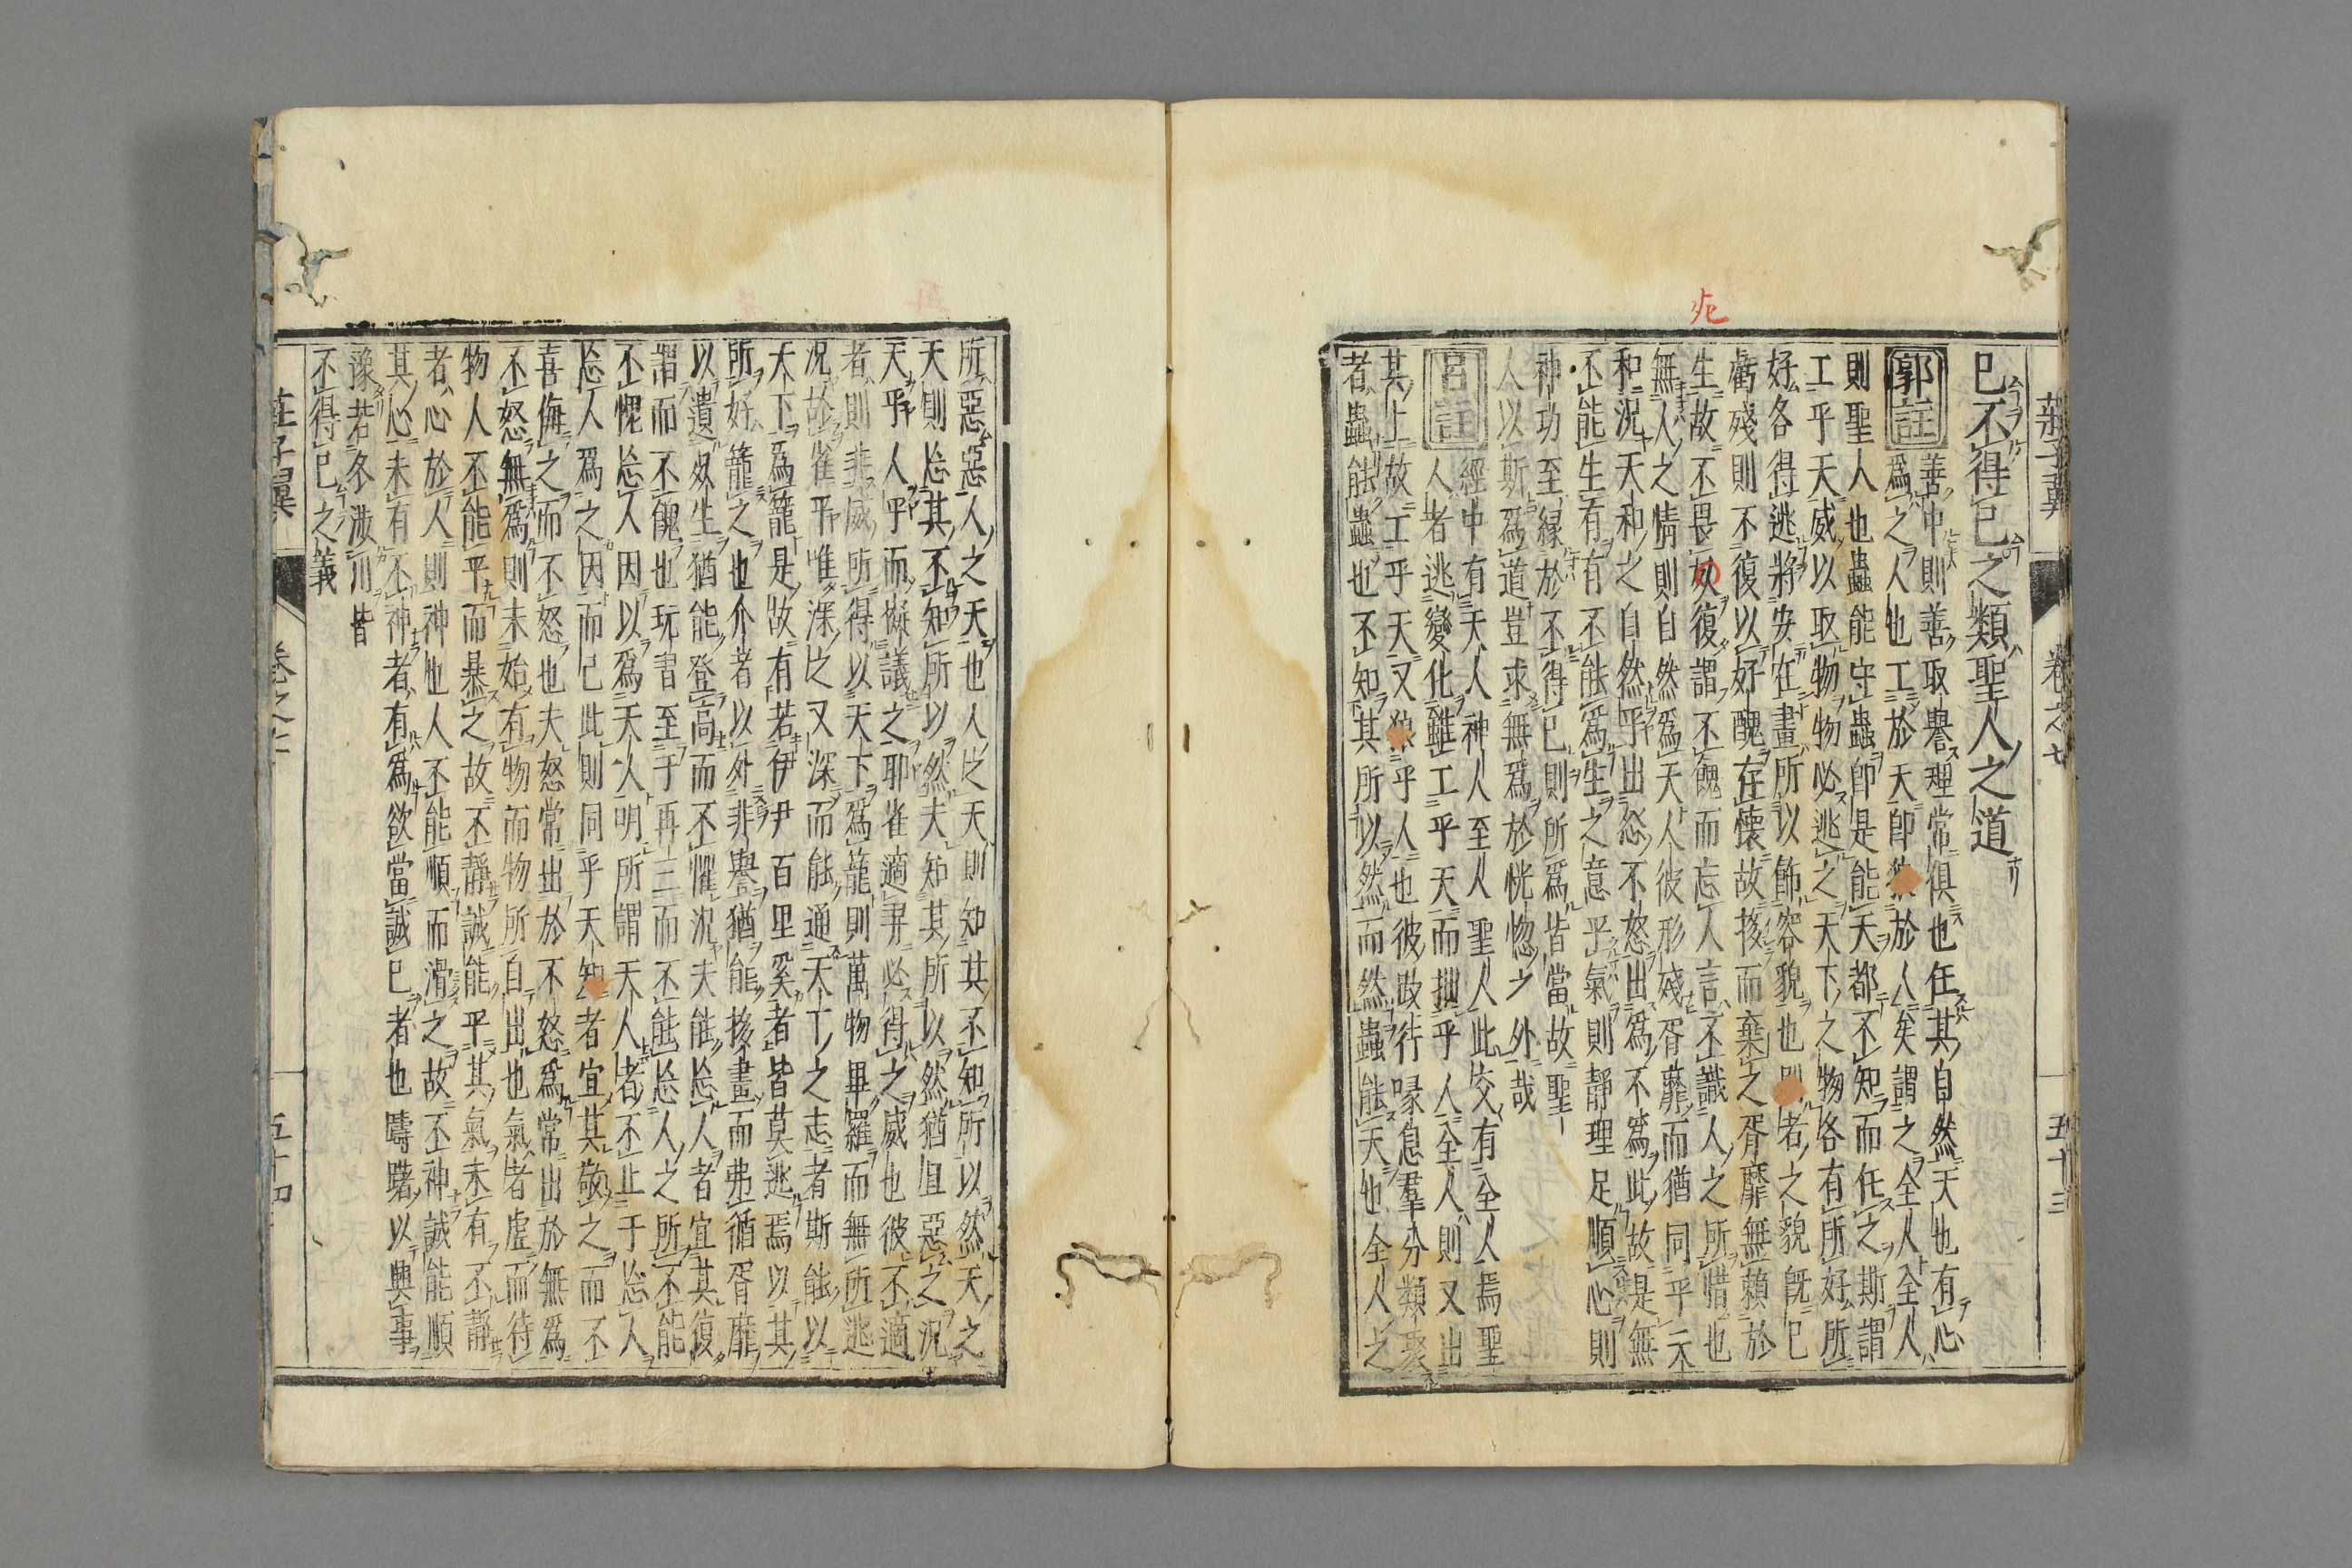 莊子翼
卷之七
五十三
死
已不得已之類聖人之道
郭註
善中則善取譽理常俱也任其自然天也有心
爲之人也工於天即於人矣謂之全人全人
則聖人也蟲能守蟲即是能天都不知而任之斯謂
工乎天威以取物物必逃之天下之物各有所好所
好各得逃將安在畫所以飾容貌也者之貌旣已
虧殘則不復以好醜在懷故拸而棄之胥靡無賴於
生故不畏死復謂不餽而忘人言不識人之所惜也
無人之情則自然爲天人彼形殘胥靡而猶同乎天
和況天和之自然乎出怒不怒出爲不爲此故是無
不能生有有不能爲生之意乎氣則靜理足順心則
神功至緣於不得已則所爲皆當故聖
人以斯爲道豈求無爲於恍惚之外哉
呂註
經中有天人神人至人聖人此又有全人焉聖
人者逃變化雖工乎天而拙乎人全人則又出
其上故工乎天又乎人也彼跂行喙息羣分類聚
者蟲能蟲也不知其所以然而然蟲能天也全人之
所惡惡人之天也人之天則知其不知所以然天之
天則忘其不知所以然夫知其所以然猶且惡之況
天乎人乎而擬議之耶雀適羿必得之威也彼不適
者則非威所得以天下爲籠則萬物畢羅而無所逃
況故雀乎唯深之又深而能通天下之志者斯能以
天下爲籠是故有若伊尹百里奚者皆莫逃焉以其
所好籠之也介者以外非譽猶能拸畫而弗循胥靡
以遺死生猶能登高而不懼況夫能忘人者宜其復
謂而不餽也玩書至于再三而不能忘人之所不能
不愧忘人因以爲天人明所謂天人者不止于忘人
忘人爲之因而已此則同乎天者宜其敬之而不
喜侮之而不怒也夫怒常出於不怒爲常出於無爲
不怒無爲則未始有物而物所自出也氣者虛而待
物人不能平而暴之故不靜誠能平其氣未有不靜
者心於人則神也人不能順而滑之故不神誠能順
其心未有不神者有爲欲當誠已者也躊躇以興事
豫若冬涉川皆
不得已之義
莊子翼
卷之七
五十四